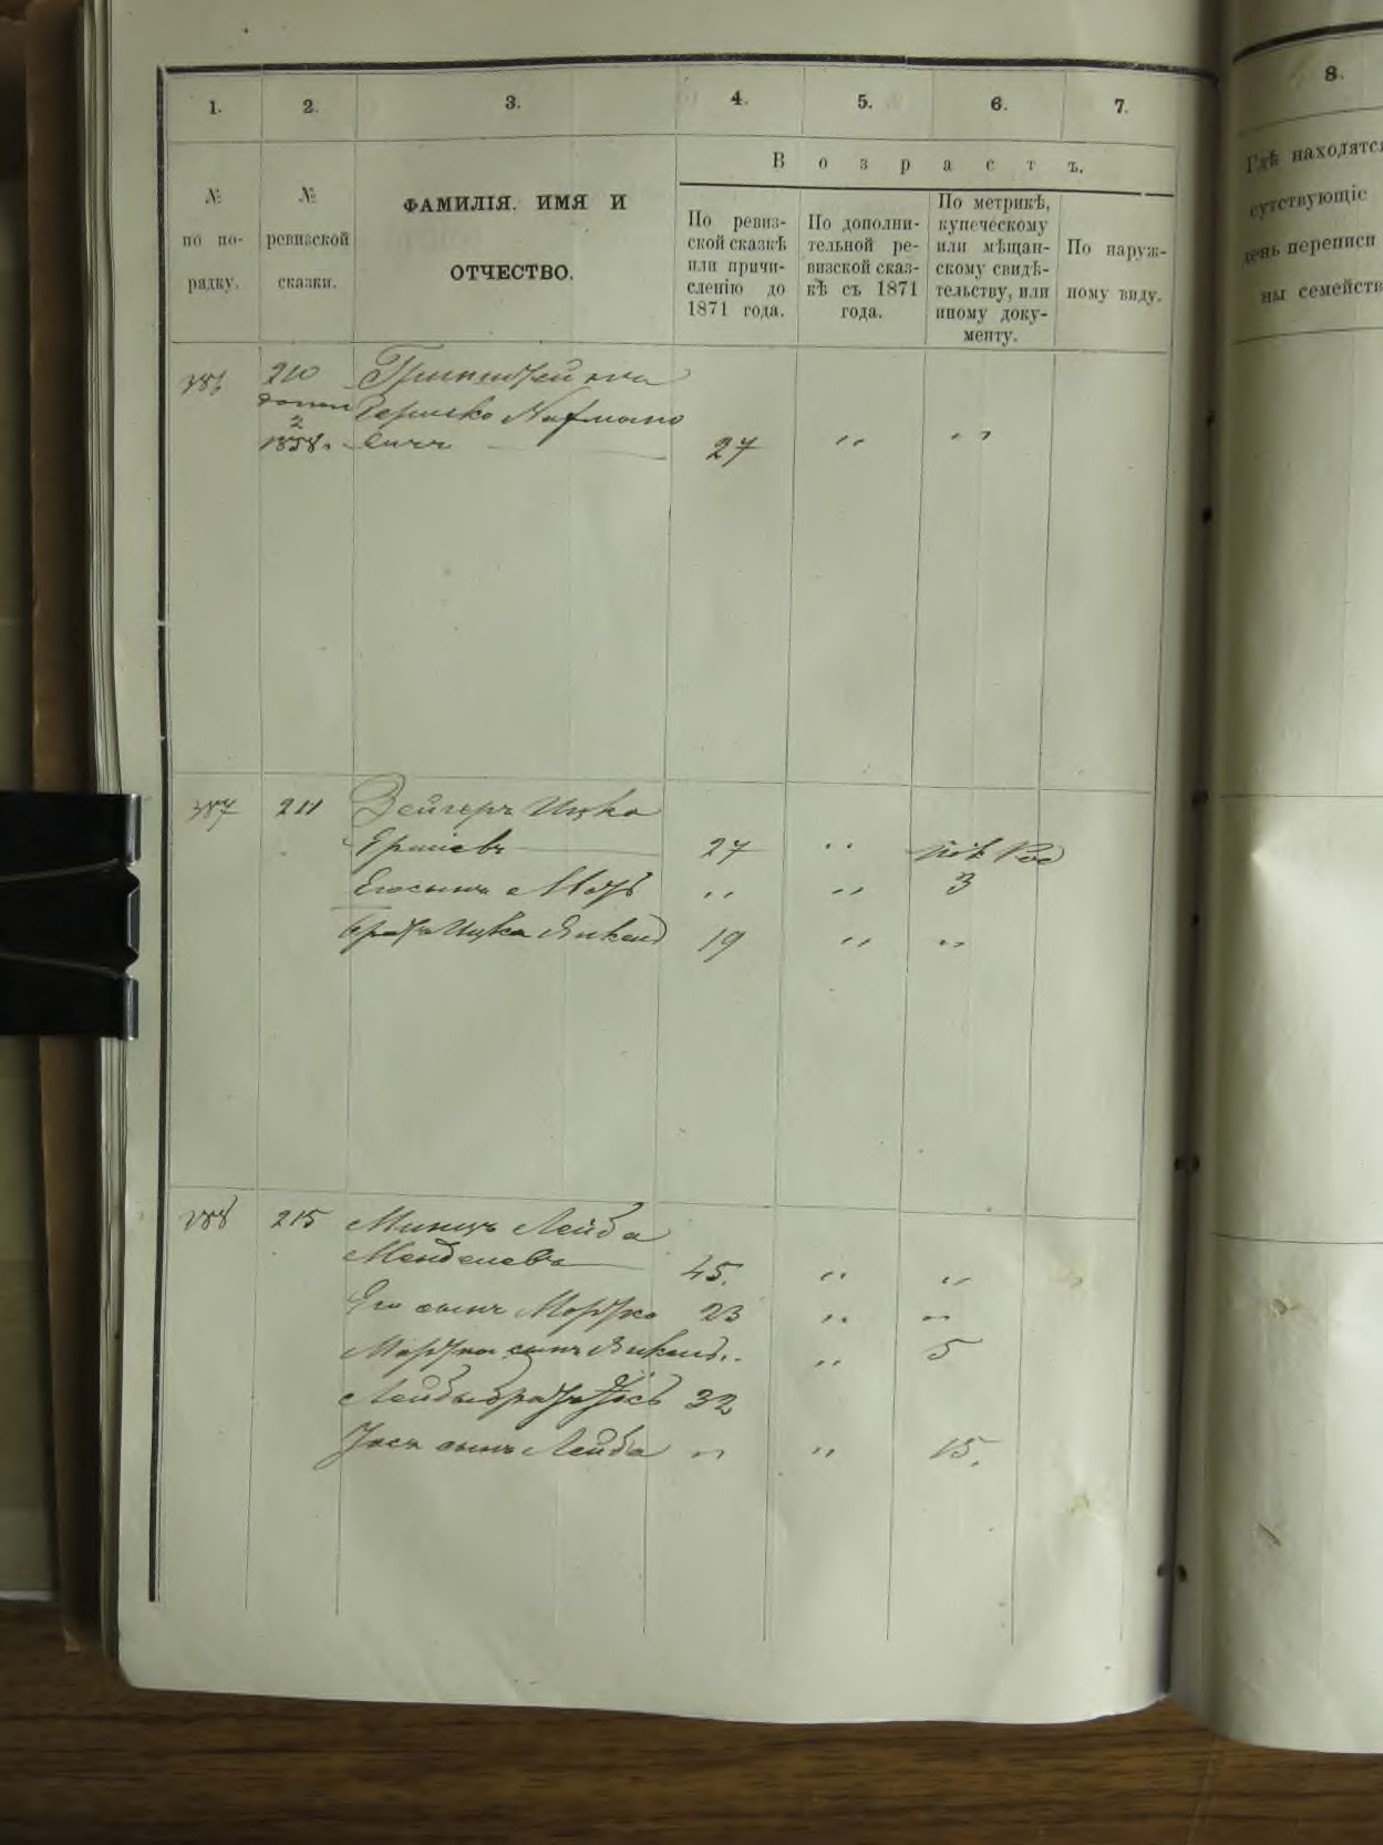 1. 2. 3. 4. 5. 6. 7.
№ по порядку.
№ ревизской сказки.
ФАМИЛІЯ. ИМЯ И
ОТЧЕСТВО.
Возрастъ.
По ревиз-
ской сказкѣ
или причи-
сленію до
1871 года.
По дополни-
тельной ре-
визской сказ-
кѣ съ 1871
года.
По метрикѣ,
купеческому
или мѣщан-
скому свидѣ-
тельству, или
иному доку-
менту.
По наруж-
ному виду.
386 210
2
1858. вичъ 27 " "
387 211 Вейгеръ Ицка
27 "
Его сынъ " " 3
братъ Ицка Янкель 19 " "
388 215 Минцъ Лейба
Менделевъ 45. " "
Его сынъ Мортко 23 " "
Мортка сынъ Янкель " " 5
Лейбы братъ Іосъ 32
Іося сынъ Лейба " " 15.
8.
Гдѣ находятся
сутствующіе
день переписи
ны семейств